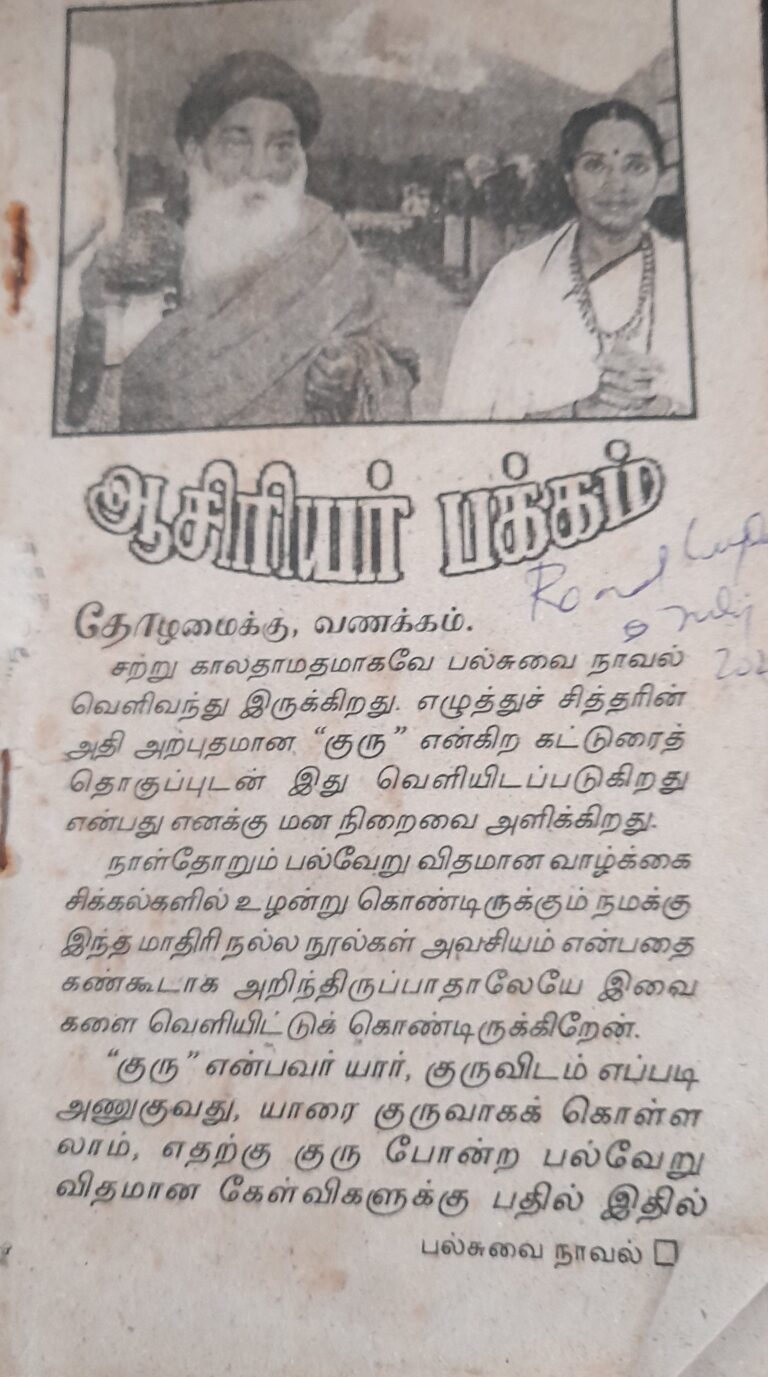 ஆசிரியர் பக்கம்
தோழமைக்கு, வணக்கம்.
சற்று காலதாமதமாகவே பல்சுவை நாவல்
வெளிவந்து இருக்கிறது. எழுத்துச் சித்தரின்
அதி அற்புதமான "குரு" என்கிற கட்டுரைத்
தொகுப்புடன் இது வெளியிடப்படுகிறது
என்பது எனக்கு மன நிறைவை அளிக்கிறது.
நாள்தோறும் பல்வேறு விதமான வாழ்க்கை
சிக்கல்களில் உழன்று கொண்டிருக்கும் நமக்கு
இந்த மாதிரி நல்ல நூல்கள் அவசியம் என்பதை
கண்கூடாக அறிந்திருப்பாதாலேயே இவை
களை வெளியிட்டுக் கொண்டிருக்கிறேன்.
"குரு" என்பவர் யார், குருவிடம் எப்படி
அணுகுவது, யாரை குருவாகக் கொள்ள
லாம், எதற்கு குரு போன்ற பல்வேறு
விதமான கேள்விகளுக்கு பதில் இதில்
பல்சுவை நாவல்